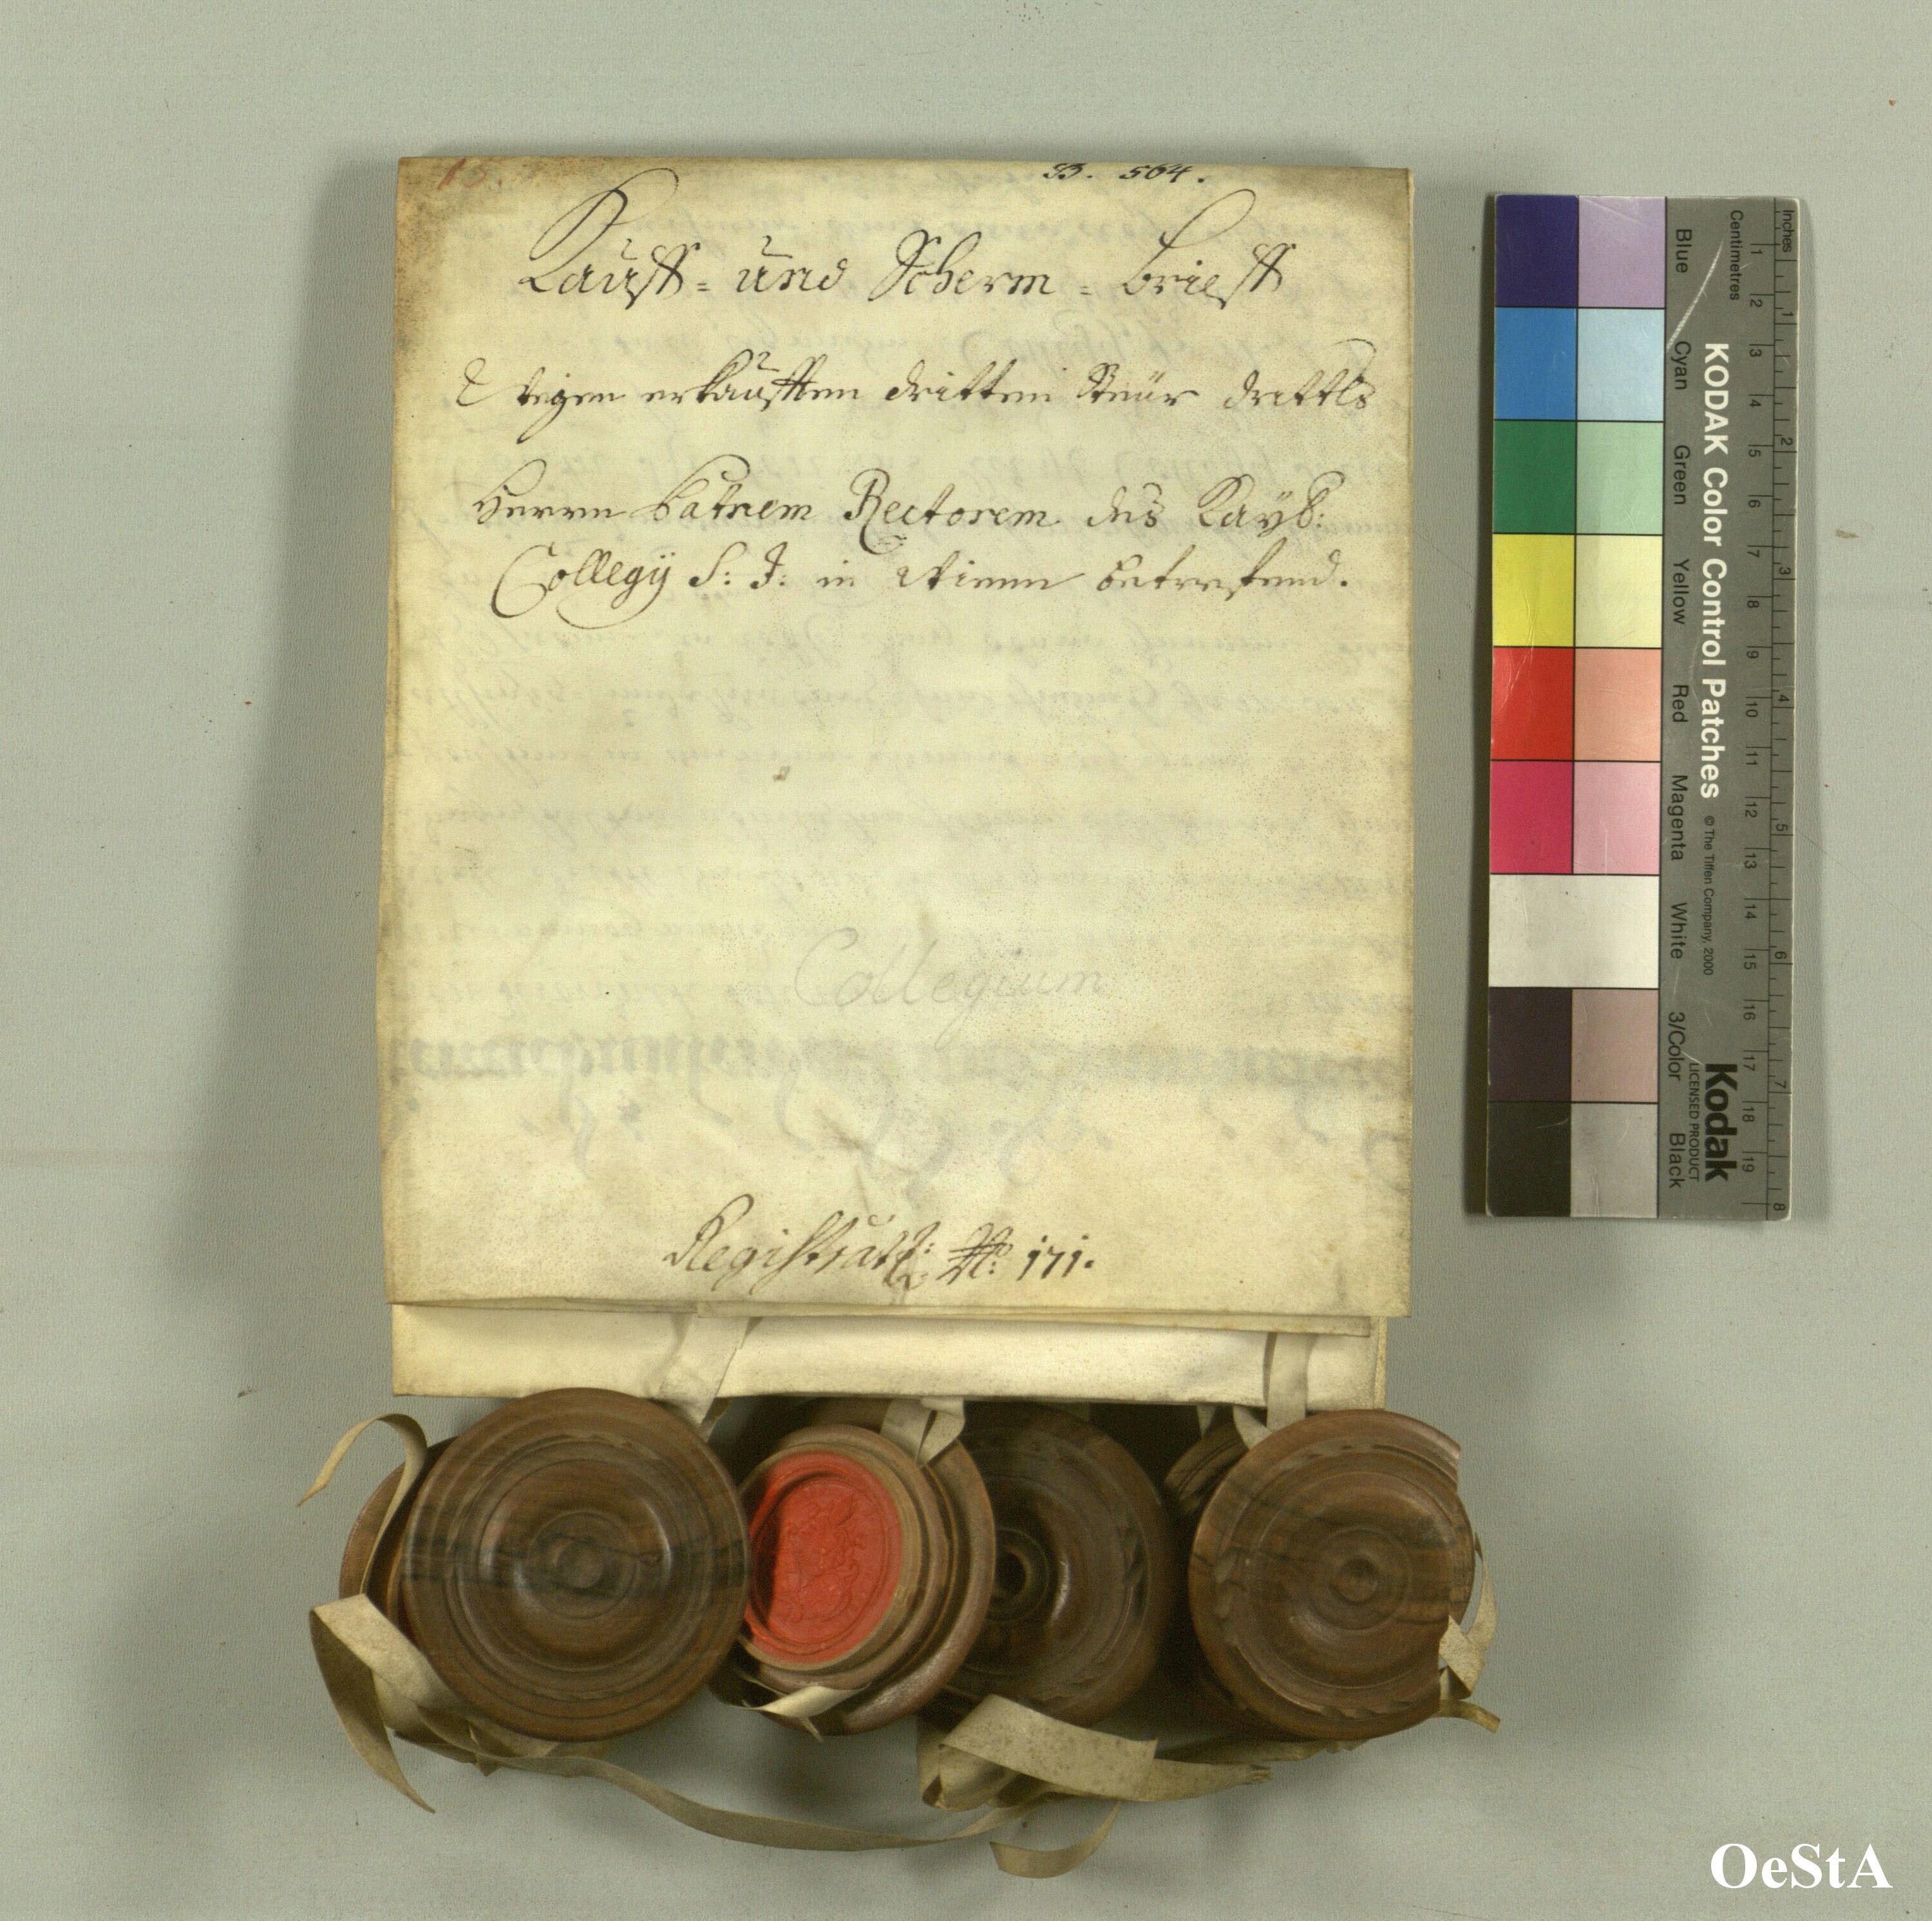 15.
B. 564.
Kauff- und Scherm-brieff
wegen erkaufften dritten Steür drittls
Herrn Patrem Rectorem des Kayß:
Collegij S: J: in Wienn betreffend.
Collegium
Registrat: N: 171.
Inches
Centimetres
Blue
Cyan
Green
Yellow
Red
Magenta
White
3/Color
Black
KODAK Color Control Patches
© The Tiffen Company, 2000
Kodak
LICENSED PRODUCT
1 2 3 4 5 6 7 8 9 10 11 12 13 14 15 16 17 18 19
1 2 3 4 5 6 7 8
OeStA